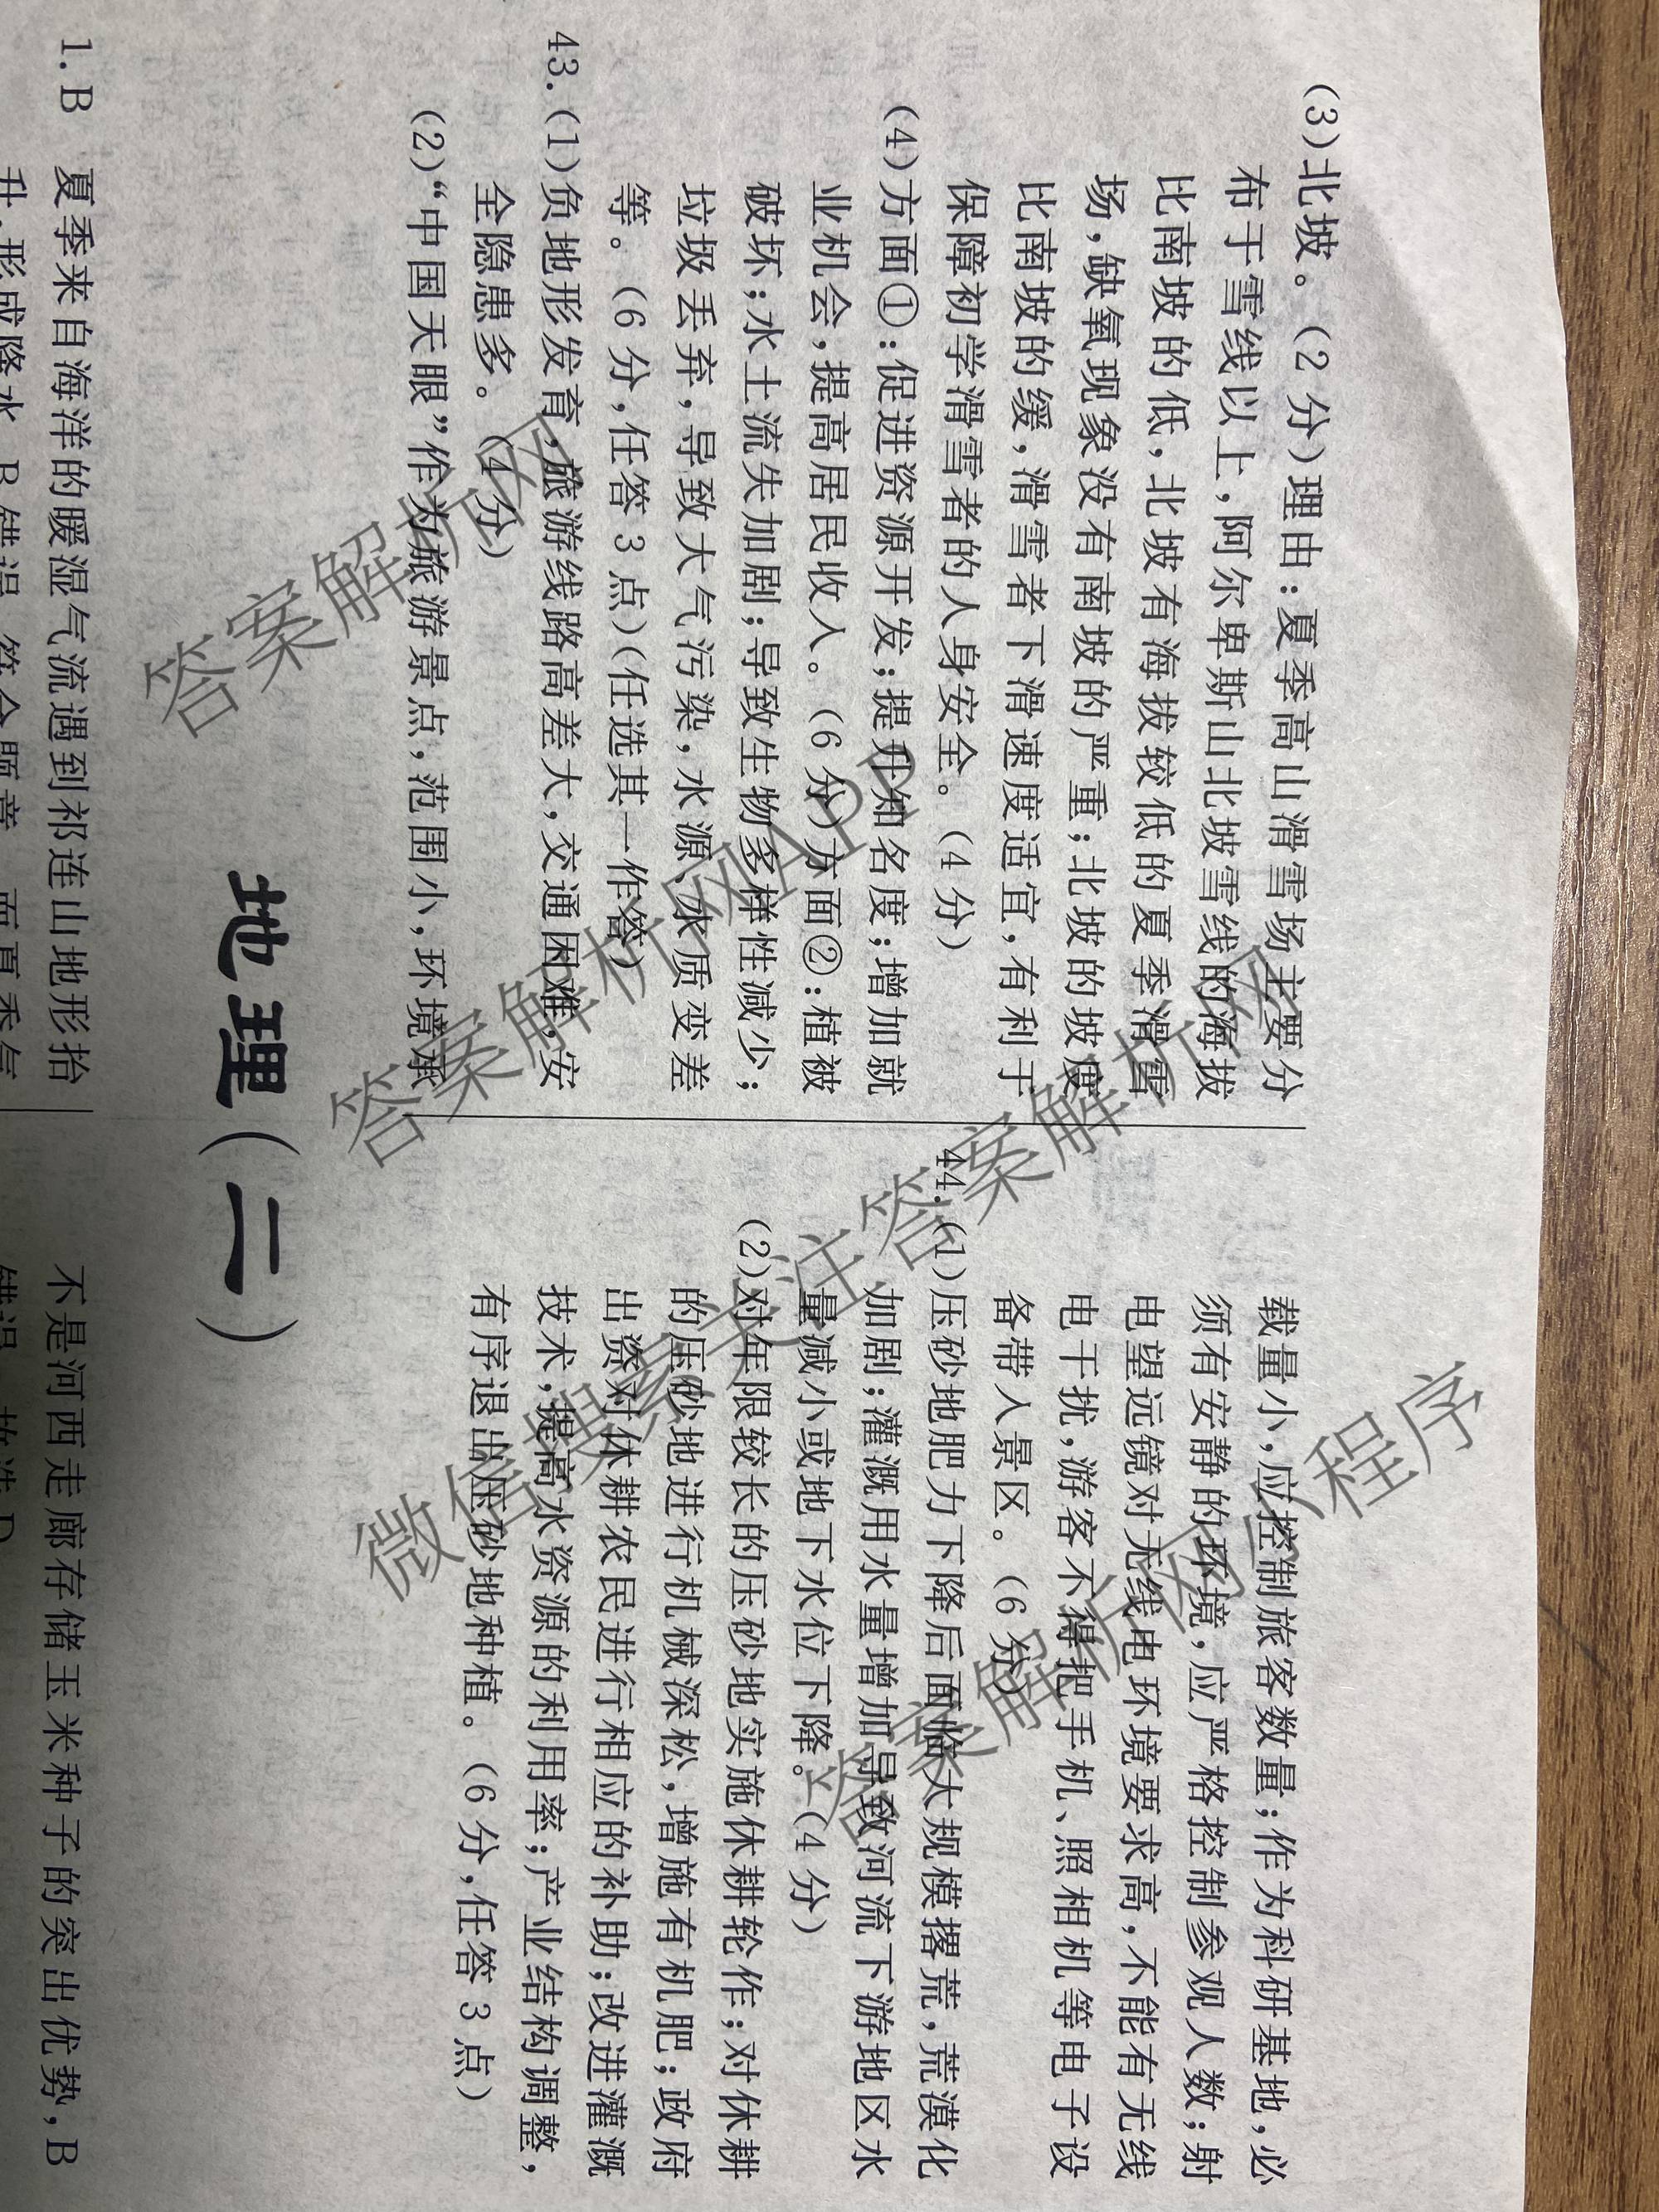 (3)北坡。(2分)理由:夏季高山滑雪场主要分
布于雪线以上,阿尔卑斯山北坡雪线的海拔
比南坡的低,北坡有海拔较低的夏季滑雪
场,缺氧现象没有南坡的严重;北坡的坡度
比南坡的缓,滑雪者下滑速度适宜,有利于
保障初学滑雪者的人身安全。(4分)
(4)方面①:促进资源开发;提升知名度;增加就
业机会;提高居民收入。(6分)方面②:植被
破坏;水土流失加剧;导致生物多样性减少;
垃圾丢弃,导致大气污染,水源、水质变差
等。(6分,任答3点)(任选其一作答)
43.(1)负地形发育,旅游线路高差大,交通困难,安
全隐患多。(4分)
(2)“中国天眼”作为旅游景点,范围小,环境承
载量小,应控制旅客数量;作为科研基地,必
须有安静的环境,应严格控制参观人数;射
电望远镜对无线电环境要求高,不能有无线
电干扰,游客不得把手机、照相机等电子设
备带入景区。(6分)
44.(1)压砂地肥力下降后面临大规模撂荒,荒漠化
加剧;灌溉用水量增加导致河流下游地区水
量减小或地下水位下降。(4分)
(2)对年限较长的压砂地实施休耕轮作;对休耕
的压砂地进行机械深松,增施有机肥;政府
出资对休耕农民进行相应的补助;改进灌溉
技术,提高水资源的利用率;产业结构调整,
有序退出压砂地种植。(6分,任答3点)
地理(二)
1.B 夏季来自海洋的暖湿气流遇到祁连山地形抬
升,形成降水,B错误,符合题意。而夏季气
不是河西走廊存储玉米种子的突出优势,B
错误。故选D。
答案解析网
答案解析网APP
微信搜索关注答案解析网
答案解析网小程序